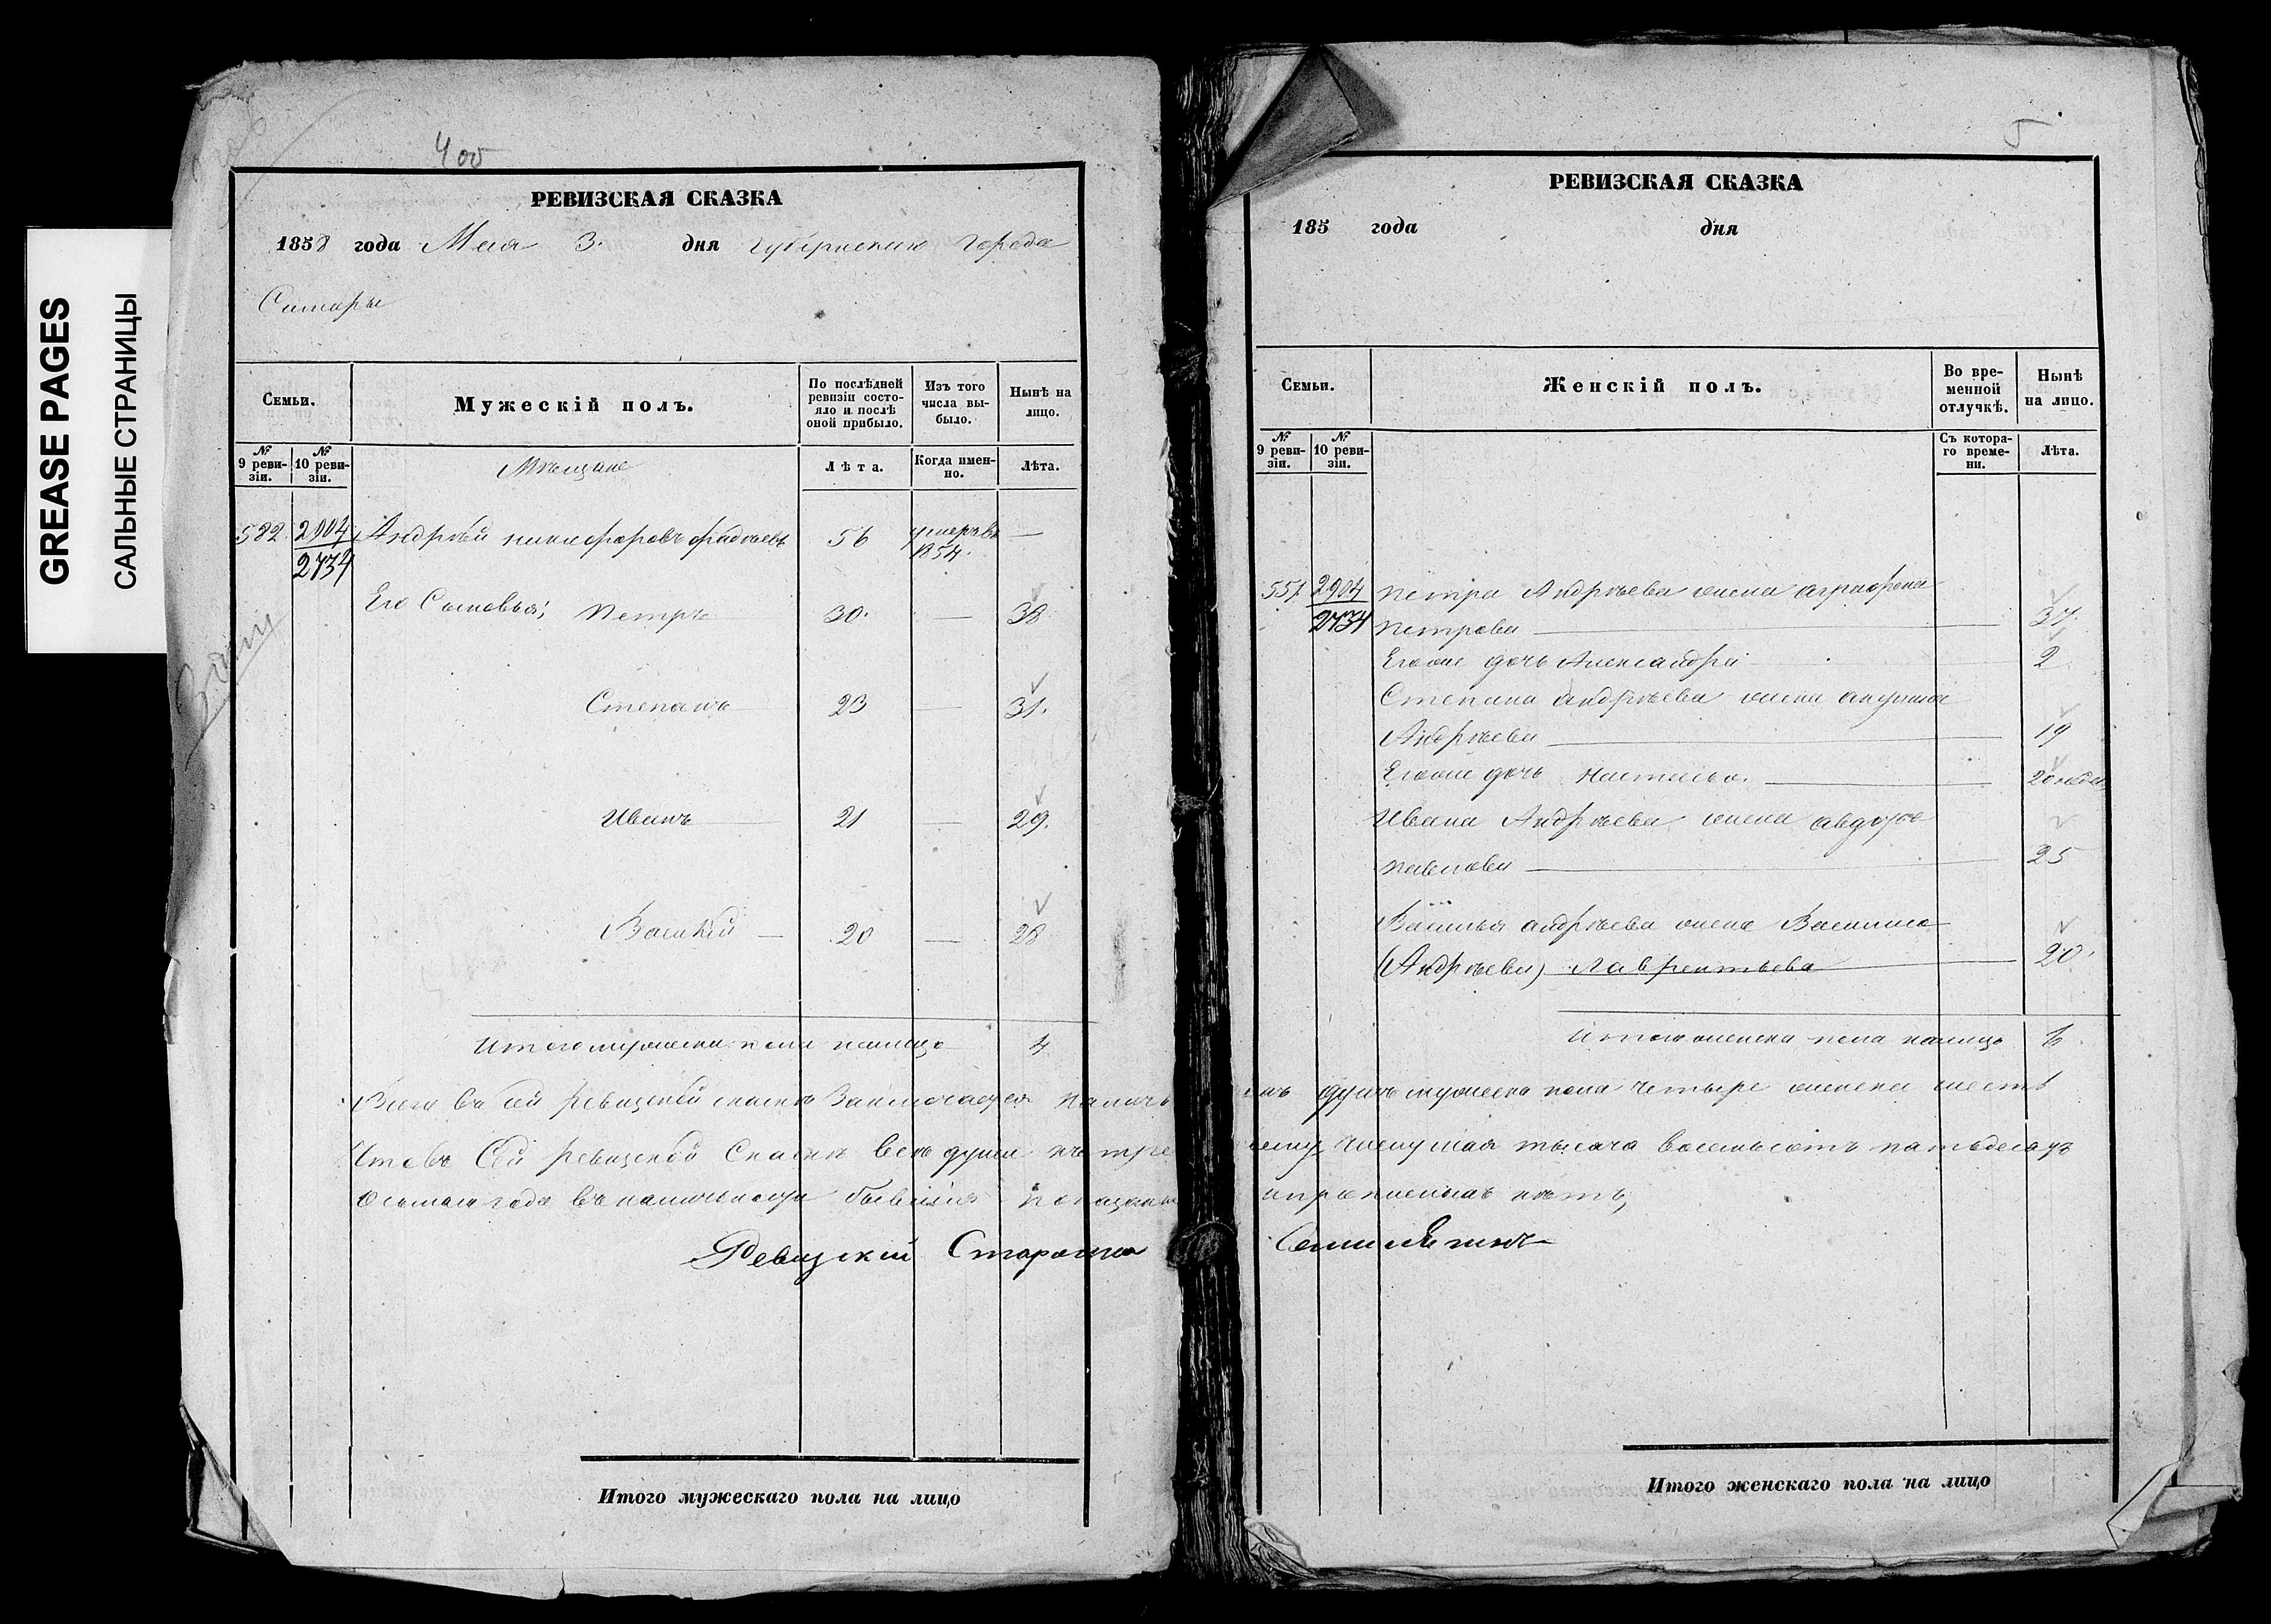 GREASE PAGES
САЛЬНЫЕ СТРАНИЦЫ
400
РЕВИЗСКАЯ СКАЗКА
1858 года Мая 3. дня Губернскаго города
Самары
Семьи.
Мужескій полъ.
По послѣдней ревизіи состояло и послѣ оной прибыло.
Изъ того числа выбыло.
Нынѣ на лицо.
№ 9 ревизіи.
№ 10 ревизіи.
Мѣщане
Лѣта.
Когда именно.
Лѣта.
582. 2904 Андрѣй Никифоровъ 56 умеръ въ —
2734 1854.
Его Сыновья; Петръ 30. — 38
Степанъ 23 — 31.
Иванъ 21 — 29.
Василій — 20 — 28
Итого мужеска пола налицо 4
Всего въ сей ревизской сказкѣ заключается
Что въ Сей ревизской Сказкѣ всѣ души
осьмаго года въ бывшія
Ревизскій Староста
Итого мужескаго пола на лицо
5
РЕВИЗСКАЯ СКАЗКА
185 года дня
Семьи.
Женскій полъ.
Во временной отлучкѣ.
Нынѣ на лицо.
№ 9 ревизіи.
№ 10 ревизіи.
Съ котораго времени.
Лѣта.
557. 2904 Петра Андрѣева жена Аграфена
2734 Петрова 37.
Егоже дочь Александра 2
Степана Андрѣева жена
Андрѣева 19
Егоже дочь Наталья. 20 недѣл
Ивана Андрѣева жена Авдотья
Павлова 25
Василья Андрѣева жена Василиса
(Андрѣева) Лаврентьева 20.
Итого женска пола налицо 6
душъ мужеска пола четыре женска шесть
тысяча восемьсотъ пятьдесятъ
нѣтъ,
Итого женскаго пола на лицо